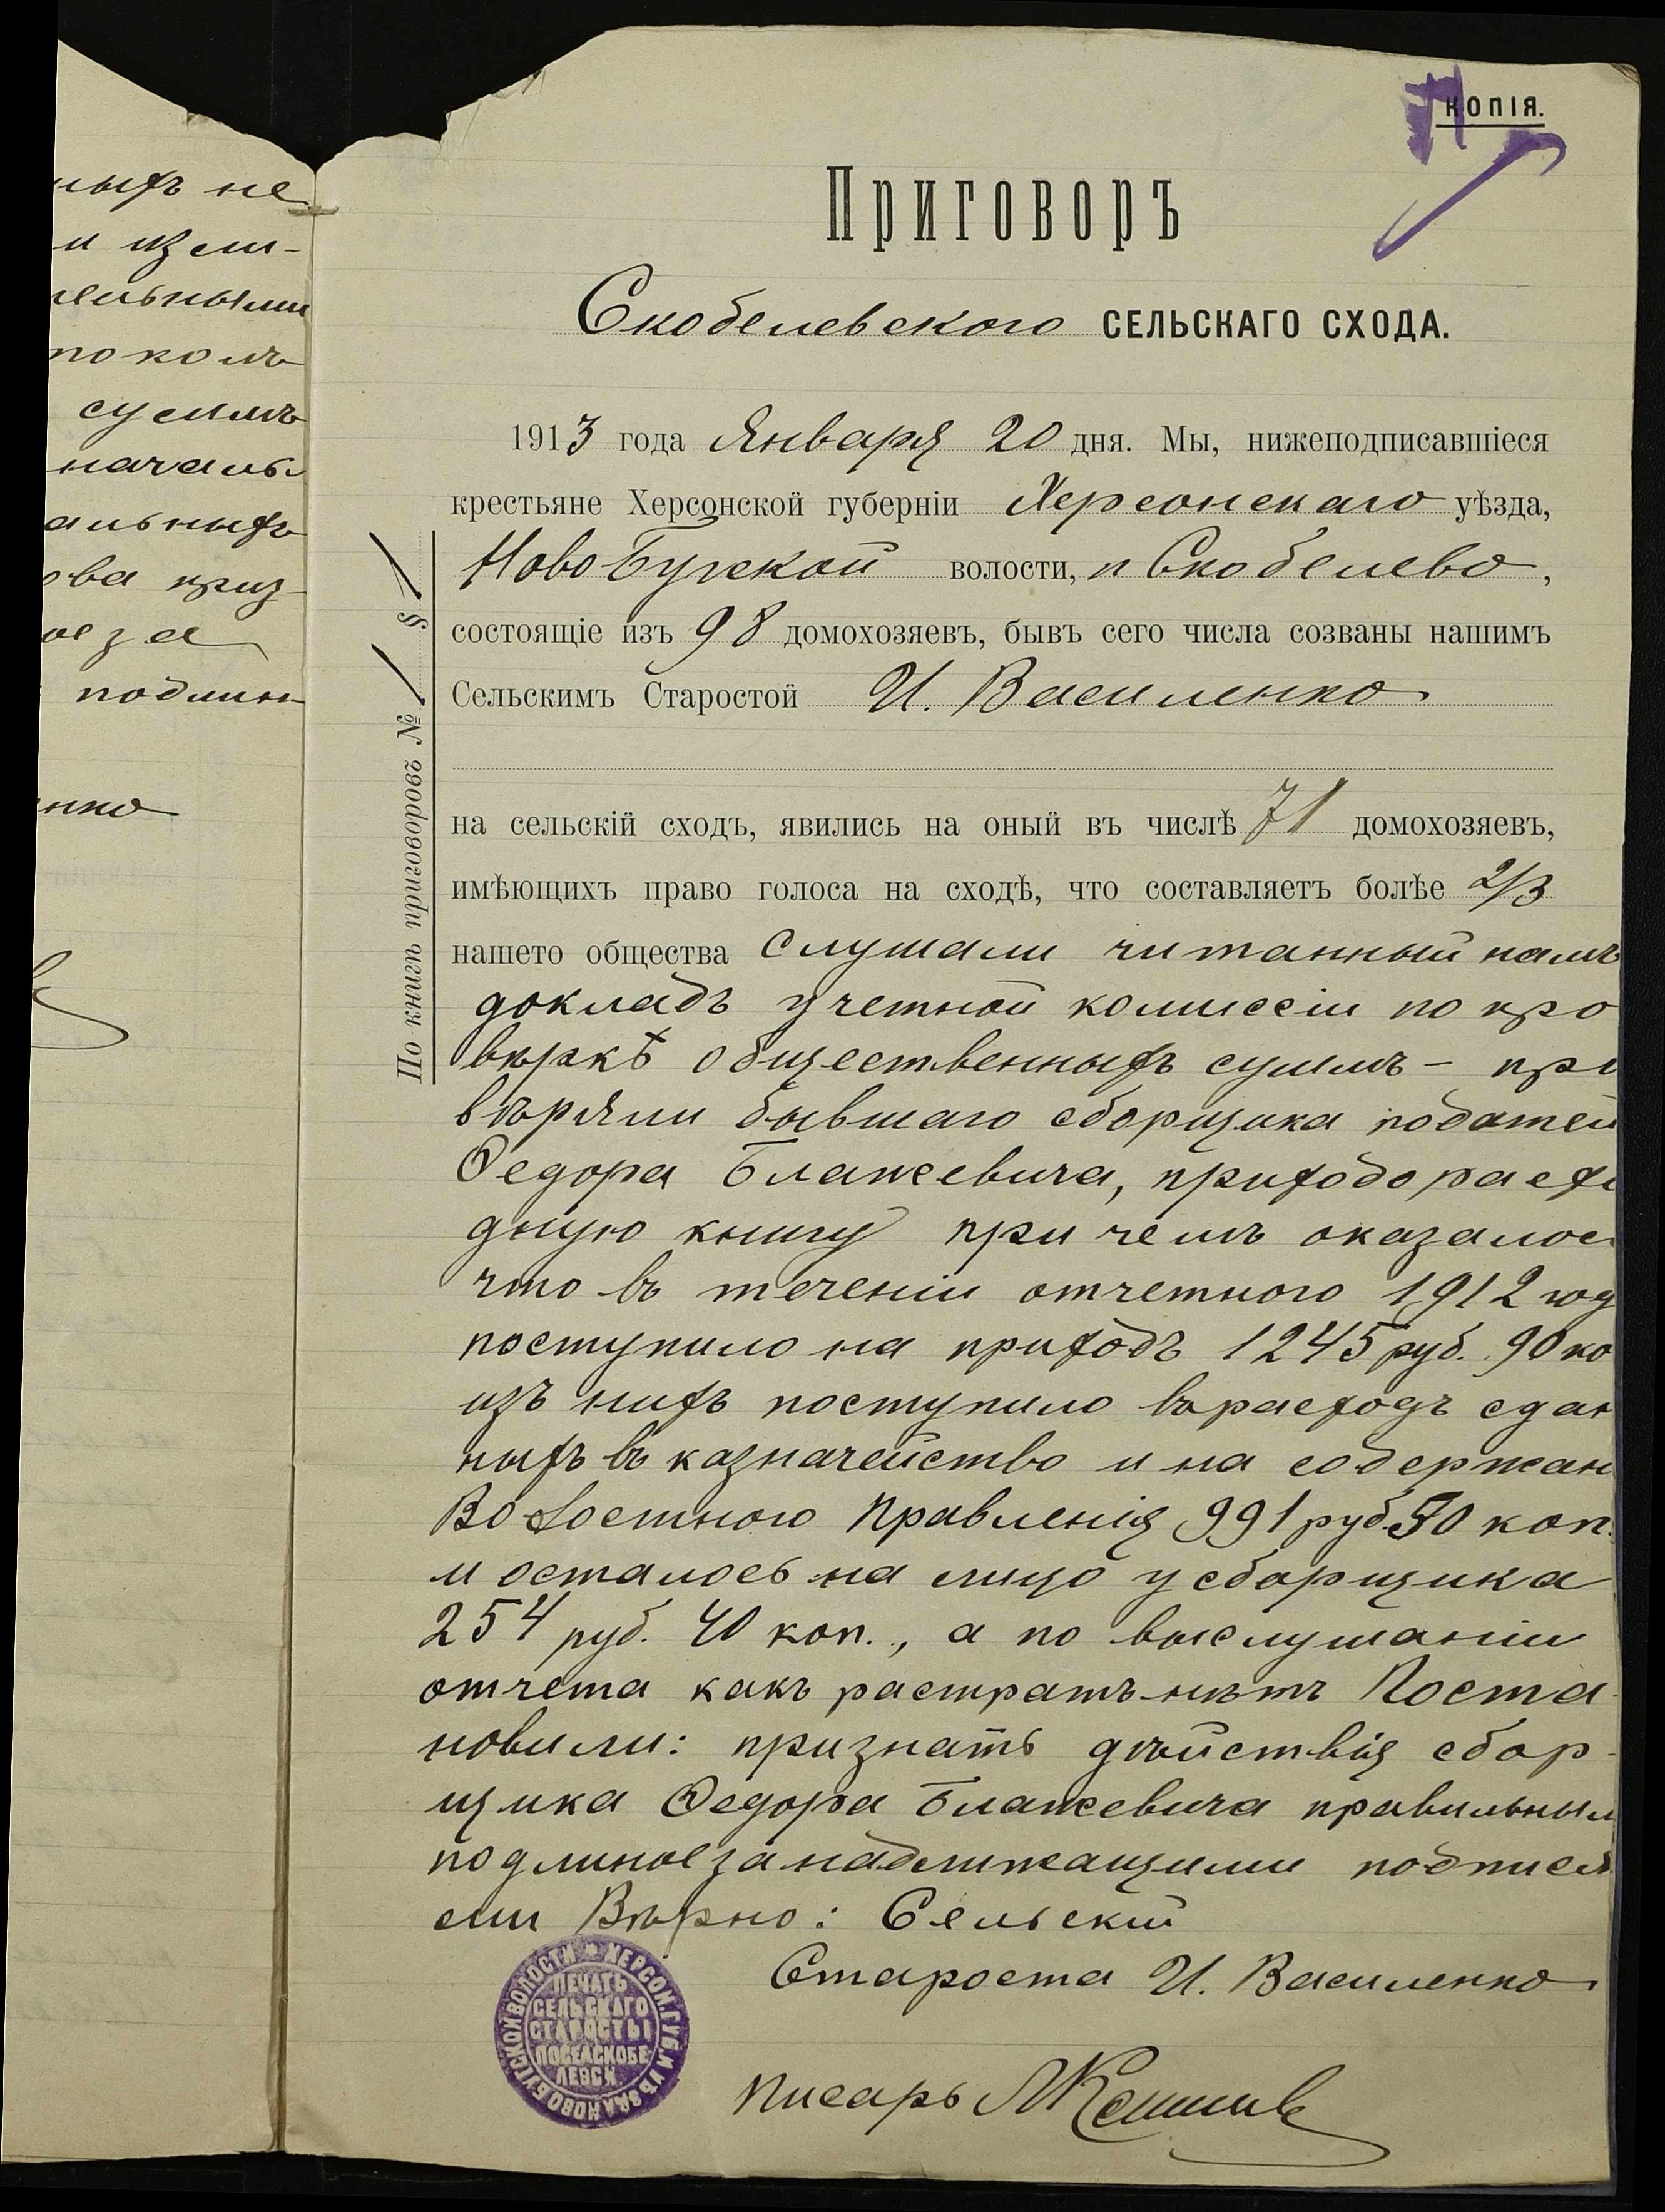 ныхъ не
и изли-
тельными
током
суммъ
началь
альныхъ
ова приз-
ое за
подлин-
енко
КОПІЯ.
Приговоръ
Скобелевского СЕЛЬСКАГО СХОДА.
1913 года Января 20 дня. Мы, нижеподписавшіеся
крестьяне Херсонской губерніи Херсонскаго уѣзда,
НовоБугской волости, п Скобелево,
состоящіе изъ 98 домохозяевъ, бывъ сего числа созваны нашимъ
Сельскимъ Старостой И. Василенко
По книгѣ приговоровъ № 1 § 1
на сельскій сходъ, явились на оный въ числѣ 71 домохозяевъ,
имѣющихъ право голоса на сходѣ, что составляетъ болѣе 2/3
нашето общества слушали читанный намъ
докладъ учетной комиссіи по про
вѣркѣ общественныхъ суммъ - про
вѣряли бывшаго сборщика податей
Ѳедора Блажевича, приходо расхо
дную книгу при чемъ оказалос
что въ теченіи отчетного 1912 год
поступило на приходъ 1245 руб. 90 ко
изъ нихъ поступило въ расходъ сдан
ныхъ въ казначейство и на содержан
Волостного Правленія 991 руб. 50 коп.
и осталось на лицо у сборщика
254 руб. 40 коп., а по выслушаніи
отчета какъ растратъ нѣтъ Поста-
новили: признать дѣйствія сбор-
щика Ѳедора Блажевича правильным
подлиное за надлижащими подпися
ми Вѣрно: Сельскій
Староста И. Василенко
Писарь
ПЕЧАТЬ
СЕЛЬСКАГО
СТАРОСТЫ
ПОСЕЛ СКОБЕ
ЛЕВСК.
НОВОБУГСКОЙ ВОЛОСТИ * ХЕРСОН. ГУБ. И УѢЗДА